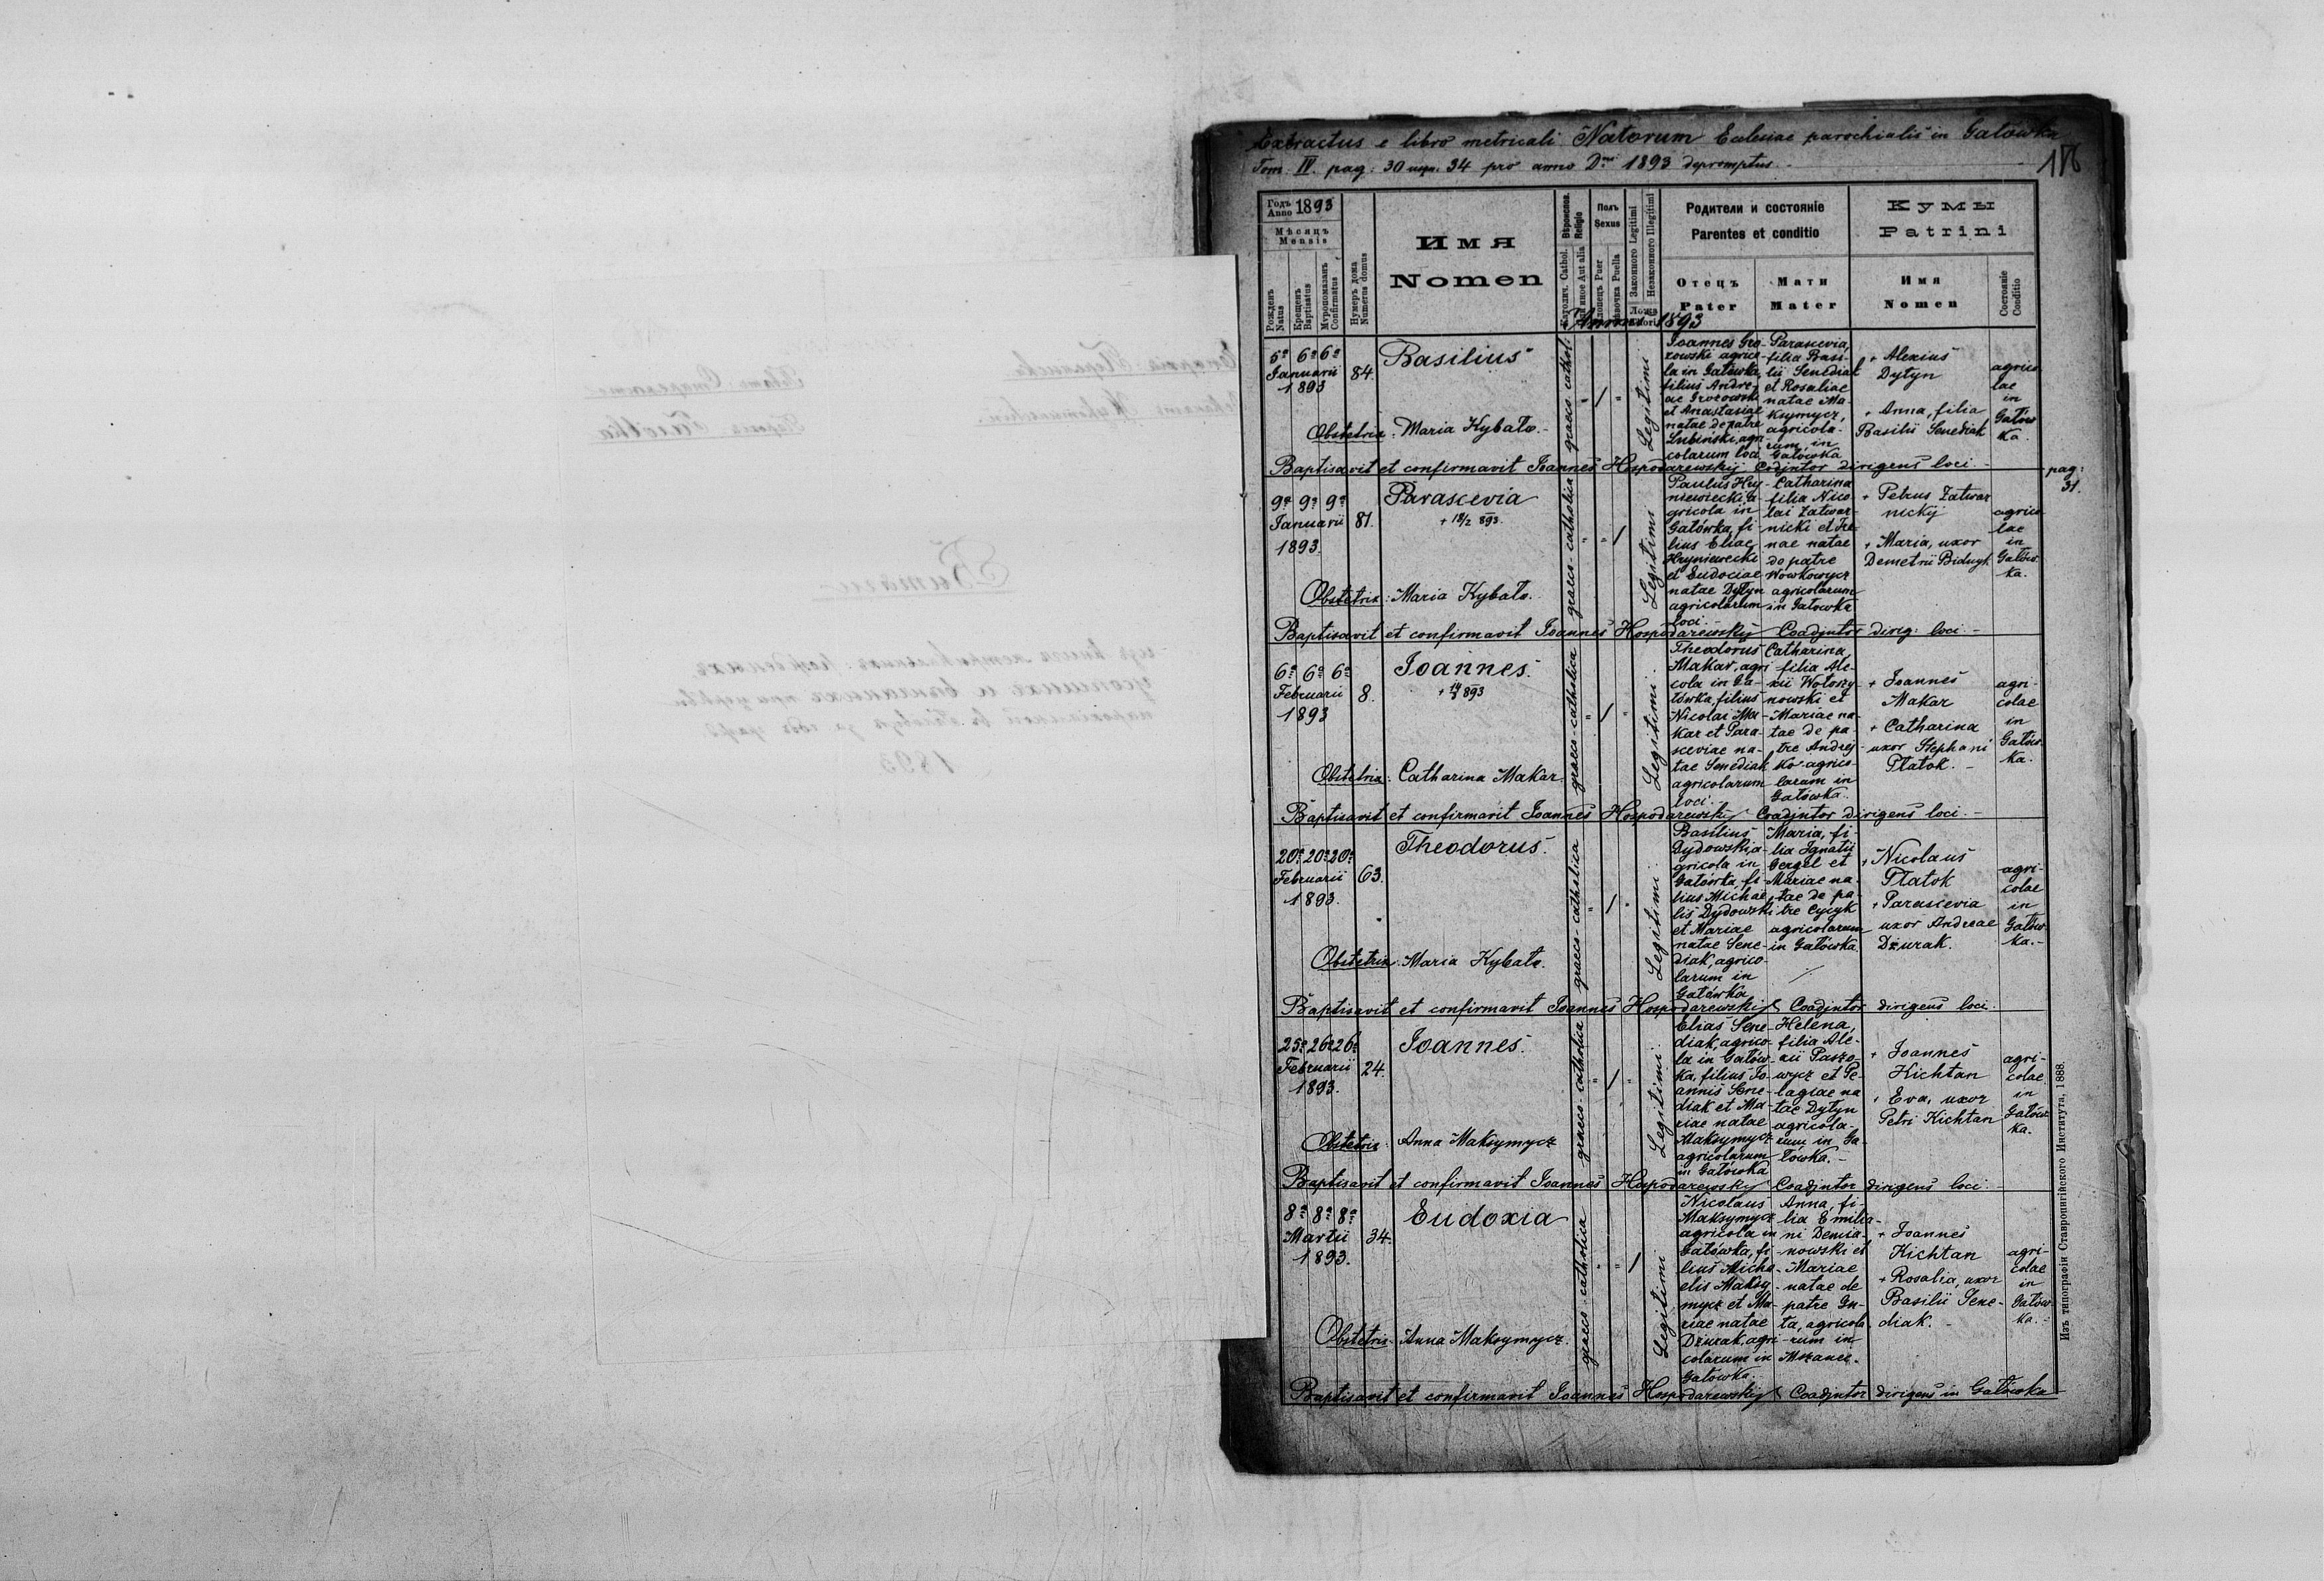 Extractus e libro metricali Natorum Ecclesiae parochialis in Gatówka
Tom. IV. pag. 30 usqu. 34 pro anno Dni 1893 depromptus.
Годъ Anno 1893
Мѣсяць
Mensis
Рожденъ Natus
Крещенъ Baptisatus
Муропомазанъ Confirmatus
Нумеръ дома Numerus domus
Имя
Nomen
Вѣроиспов. Religio
Католич. Cathol.
Aut alia
Полъ
Sexus
Хлопець Puer
Дѣвочка Puella
Законного Legitimi
Незаконного Illegitimi
Ложа
Родители и состояніе
Parentes et conditio
Отецъ
Pater
Мати
Mater
Кумы
Patrini
Имя
Nomen
Состояніе Conditio
Annus 1893
5a 6a 6a
Januarii
1893
84.
Basilius
Obstetrix: Maria Kybalo.
graeco-cathol.
Legitimi
Joannes Gro-
zowski agrico-
la in Gatówka,
filius Andre-
ae Grozowski
et Anastasiae
natae de patre
Lubiński, agri-
colarum loci
Parascevia,
filia Basi-
lii Senediak
et Rosaliae
natae Ma-
ksymycz,
agricola-
rum in
Gatówka
+ Alexius
Dytyn
+ Anna, filia
Basilii Senediak
agrico
lae
in
Gatów
ka.
Baptisavit et confirmavit Joannes Hospodarewskij Coadjutor dirigens loci.
pag:
31.
9a 9a 9a
Januarii
1893.
81.
Parascevia
+ 18/2 893.
Obstetrix: Maria Kybalo.
graeco-catholica
Legitimi
Paulus Hry-
niewiecki a-
gricola in
Gatówka, fi-
lius Eliae
Hryniewiecki
et Eudociae
natae Dytyn
agricolarum
loci.
Catharina
filia Nico-
lai Zatwar-
nicki et Ire-
nae natae
de patre
Wowkowycz
agricolarum
in Gatowka
+ Petrus Zatwar
nickij
+ Maria, uxor
Demetrii
agrico
lae
in
Gatów
ka.
Baptisavit et confirmavit Joannes Hospodarewskij Coadjutor dirig: loci.
6a 6a 6a
Februarii
1893
8.
Joannes.
Obstetrix: Catharina Makar
graeco-catholica
Legitimi
Theodorus
Makar, agri
cola in Ga-
tówka, filius
Nicolai Ma-
kar et Para-
sceviae na-
tae Senediak
agricolarum
loci.
Catharina,
filia Ale-
xii Wołoszy-
nowski et
Mariae na-
tae de pa-
tre Andrej-
ko agrico-
larum in
Gatówka.
+ Joannes
Makar
+ Catharina
uxor Stephani
Płatok.
agri-
colae
in
Gatów-
ka.
Baptisavit et confirmavit Joannes Hospodarewskij Coadjutor dirigens loci.
20a 20a 20a
Februarii
1893.
63.
Theodorus.
Obstetrix: Maria Kybalo.
graeco-catholica
Legitimi
Basilius
Dydowski a-
gricola in
Gatówka, fi-
lius Michae-
lis Dydowski
et Mariae
natae Sene-
diak, agrico-
larum in
Gatówka
Maria, fi-
lia Ignatii
Gergel et
Mariae na-
tae de pa-
tre Cycyk
agricolarum
in Gatówka.
+ Nicolaus
Płatok
+ Parascevia
uxor Andreae
Dżurak.
agri-
colae
in
Gatów
ka.
Baptisavit et confirmavit Joannes Hospodarewskij Coadjutor dirigens loci.
25a 26a 26a
Februarii
1893.
24.
Joannes.
Obstetrix: Anna Maksymycz
graeco-catholica
Legitimi
Elias Sene-
diak agrico-
la in Gatów-
ka, filius Jo-
annis Sene-
diak et Ma-
riae natae
Maksymycz
agricolarum
in Gatówka
Helena,
filia Ale-
xii Paszo-
wycz et Pe-
lagiae na
tae Dytyn
agricola-
rum in Ga-
tówka.
+ Joannes
Kichtan
+ Eva, uxor
Petri Kichtan
agri-
colae
in
Gatów
ka.
Baptisavit et confirmavit Joannes Hospodarewskij Coadjutor dirigens loci.
8a 8a 8a
Martii
1893.
34.
Eudoxia
Obstetrix: Anna Maksymycz.
graeco-catholica
Legitimi
Nicolaus
Maksymycz
agricola in
Gatówka, fi-
lius Micha-
elis Maksy-
mycz et Ma-
riae natae
Dżurak agri-
colarum in
Gatowka.
Anna, fi-
lia Emilia-
ni Demia-
nowski et
Mariae
natae de
patre Gu-
ta, agricola
rum in
+ Joannes
Kichtan
+ Rosalia, uxor
Basilii Sene-
diak.
agri-
colae
in
Gatów
ka.
Baptisavit et confirmavit Joannes Hospodarewskij Coadjutor dirigens in Gatówka
Изъ типографіи Ставропигійского Института, 1888.